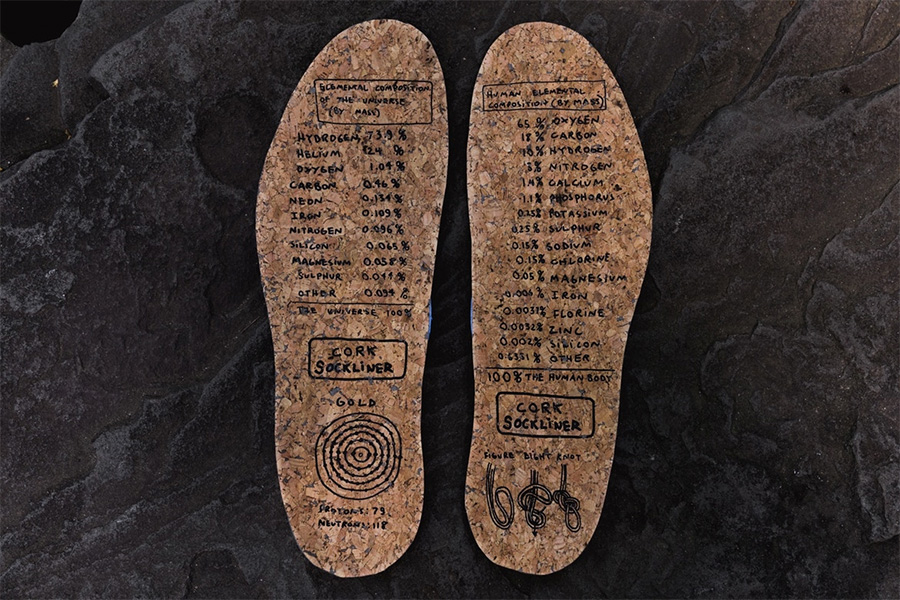 ELEMENTAL COMPOSITION
OF THE UNIVERSE
(BY MASS)
HYDROGEN 73.9 %
HELIUM 24 %
OXYGEN 1.04 %
CARBON 0.46 %
NEON 0.134 %
IRON 0.109 %
NITROGEN 0.096 %
SILICON 0.065 %
MAGNESIUM 0.058 %
SULPHUR 0.044 %
OTHER 0.094 %
THE UNIVERSE 100%
CORK
SOCKLINER
GOLD
PROTONS: 79
NEUTRONS: 118
HUMAN ELEMENTAL
COMPOSITION (BY MASS)
65 % OXYGEN
18 % CARBON
10 % HYDROGEN
3% NITROGEN
1.4% CALCIUM
1.1% PHOSPHORUS
0.25% POTASSIUM
0.25% SULPHUR
0.15% SODIUM
0.15% CHLORINE
0.05% MAGNESIUM
0.006% IRON
0.0037% FLORINE
0.0032% ZINC
0.002% SILICON
% OTHER
100% THE HUMAN BODY
CORK
SOCKLINER
FIGURE EIGHT KNOT